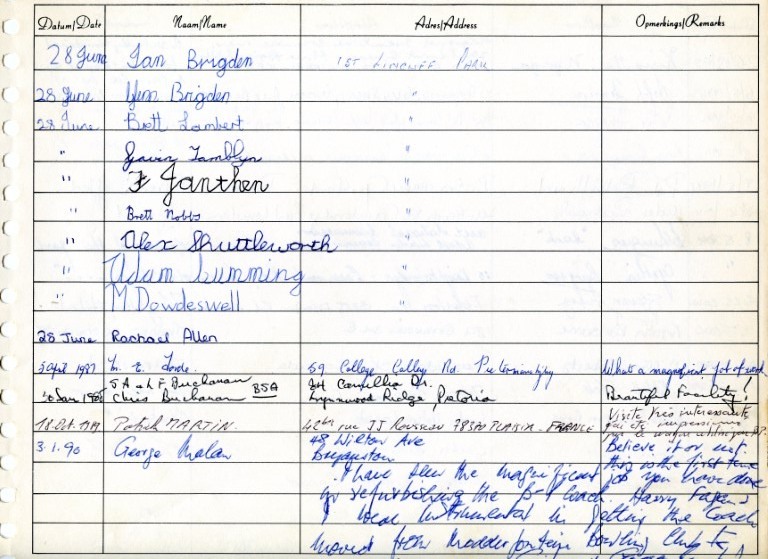 Datum/Date Naam/Name Adres/Address Opmerkings/Remarks
28 June Ian Brigden 1ST Linomee Park
28 June Brigden "
28 June Brett Lambert "
" Gavin Tamblyn "
" F Janthen "
" Brett Nobbs "
" Alex Shuttleworth "
" Adam Cumming "
" M. Dowdeswell "
28 June Rachael Allen
5 April 1987 59 College Rd. Pietermaritzburg What a magnificent of work
J A & L F Buchanan 24 Camellia Dr. Beautiful Facility!
30 Jan Chris Buchanan BSA Lynnwood Ridge, Pretoria
Visite très intéressante
18. Oct. Patrick MARTIN. 42 bis rue JJ Rousseau 78370 PLAISIR - FRANCE j'ai été
3.1.90 George Malan 48 Wilton Ave Believe it or not.
Bryanston this is the first time
I have seen the magnificent job you have done
in refurbishing the Coach. Harry
& I were instrumental in getting the Coach
moved from Bowling Club